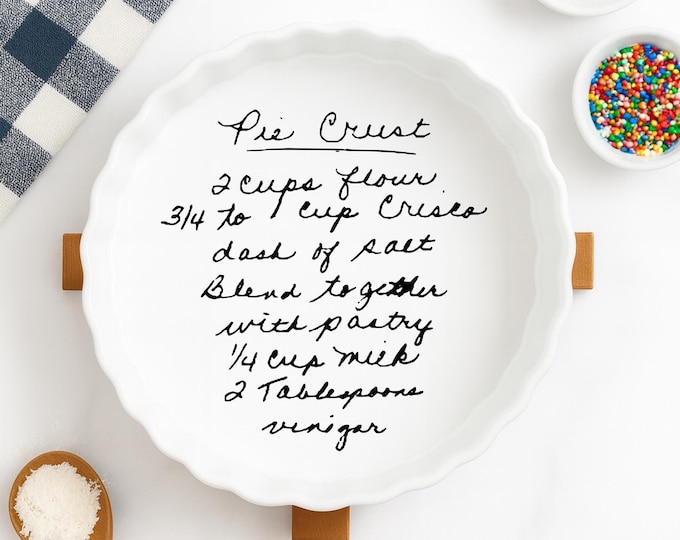 Pie Crust
2 cups flour
3/4 to 1 cup Crisco
dash of salt
Blend together
with pastry
1/4 cup milk
2 Tablespoons
vinegar